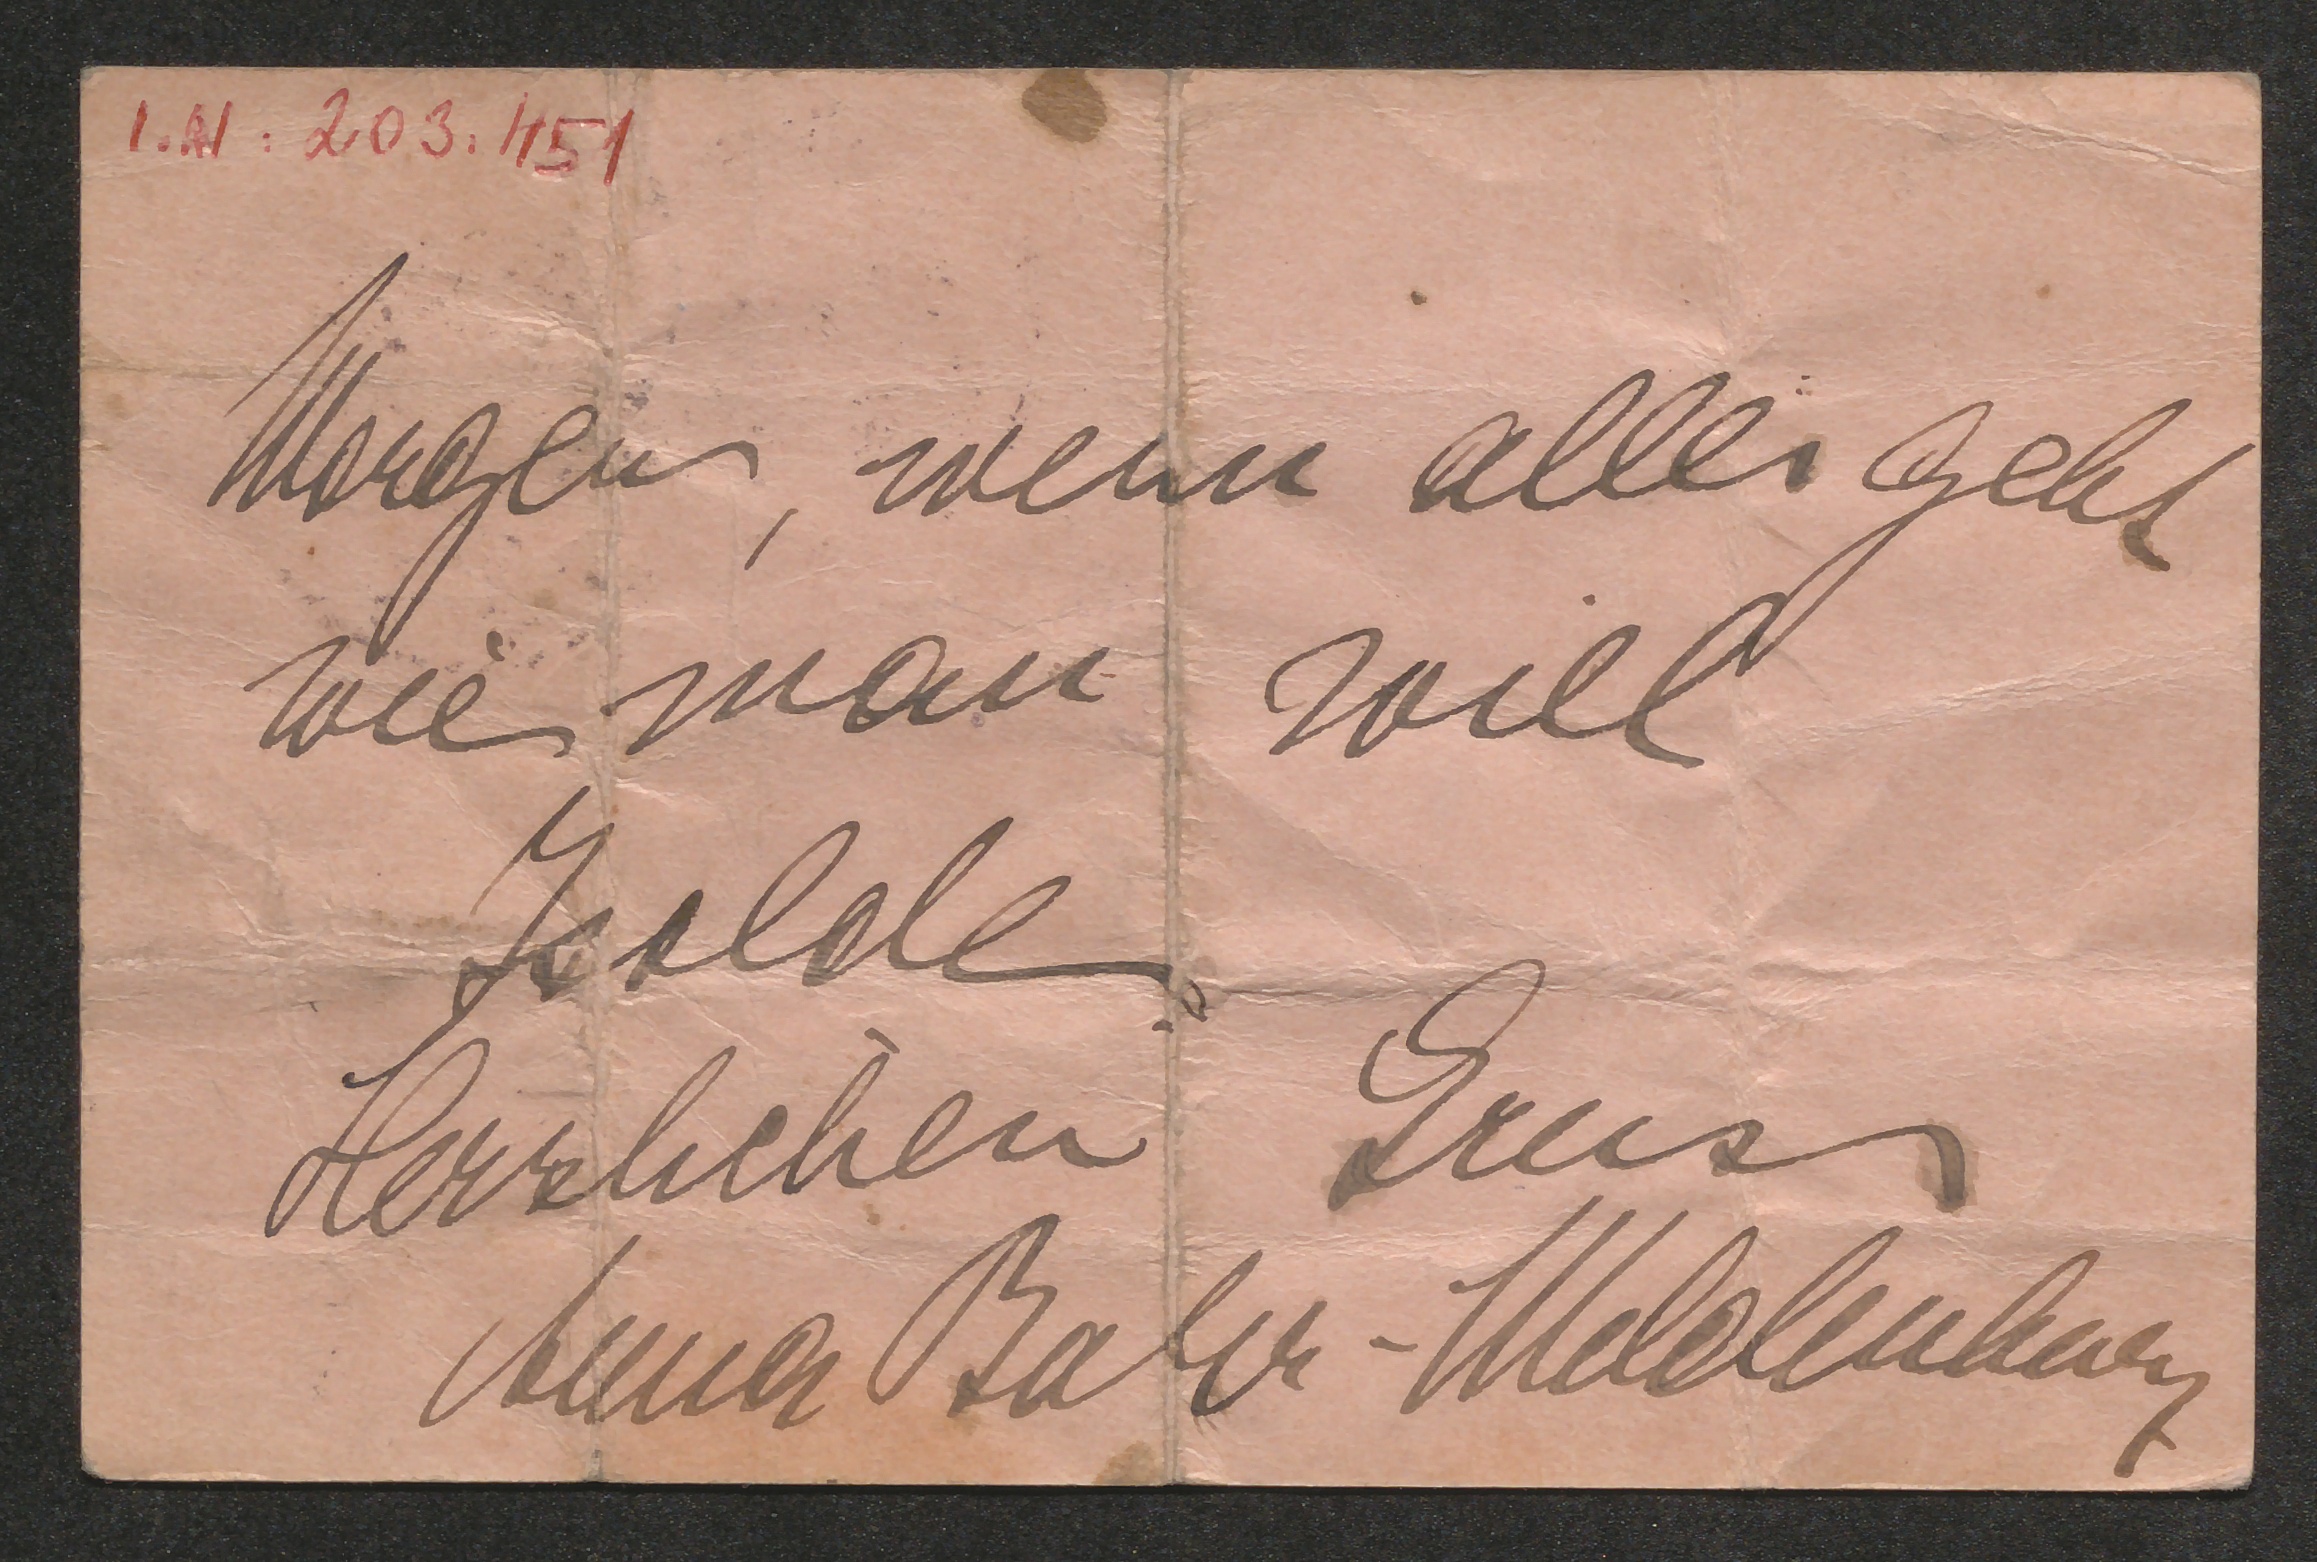 I.N: 203.451
Morgen, wenn alles geht
wie man will
Isolde.
Herzlichen Gruss
Anna Bahr-Mildenburg